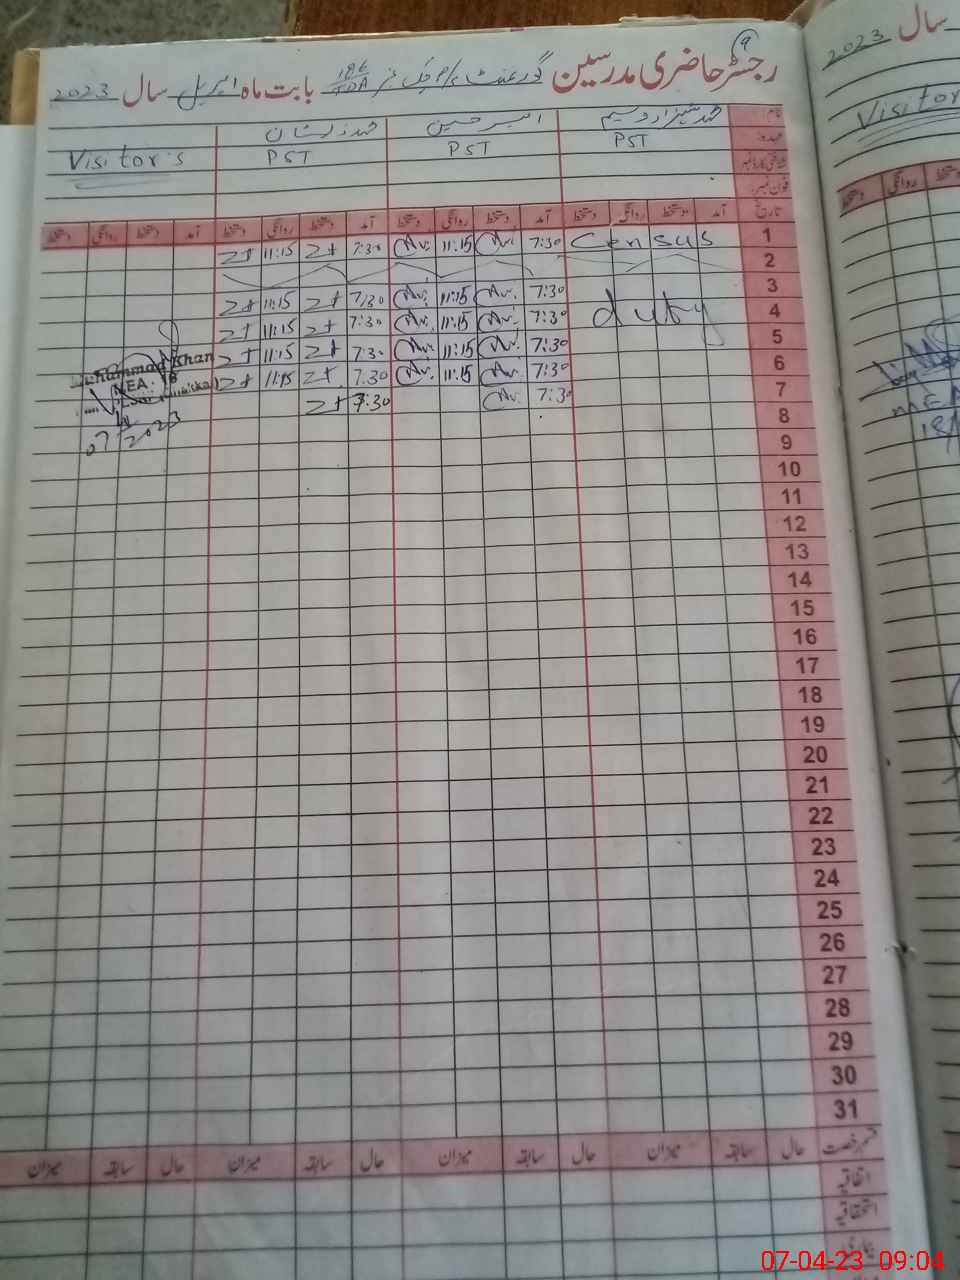 ۹
رجسٹر حاضری مدرسین گورنمنٹ نمبر 186/TDA بابت ماہ اپریل سال 2023
نام: محمد شہزاد وسیم امیر حسین محمد ذیشان
عہدہ: PST PST PST Visitor's
شناختی کارڈ نمبر
فون نمبر:
تاریخ آمد دستخط روانگی دستخط آمد دستخط روانگی دستخط آمد دستخط روانگی دستخط آمد دستخط روانگی دستخط
1 Census 7:30 11:15 7:30 11:15
2
3 7:30 11:15 7:30 11:15
4 duty 7:30 11:15 7:30 11:15
5 7:30 11:15 7:30 11:15
6 7:30 11:15 7:30 11:15
7 7:30 7:30
Muhammad Khan
MEA-
07 2023
8
9
10
11
12
13
14
15
16
17
18
19
20
21
22
23
24
25
26
27
28
29
30
31
قسم رخصت حال سابقہ میزان حال سابقہ میزان حال سابقہ میزان حال سابقہ میزان
اتفاقیہ
استحقاقیہ
بیماری
سال 2023
Visitor
روانگی دستخط
MEA
07-04-23 09:04